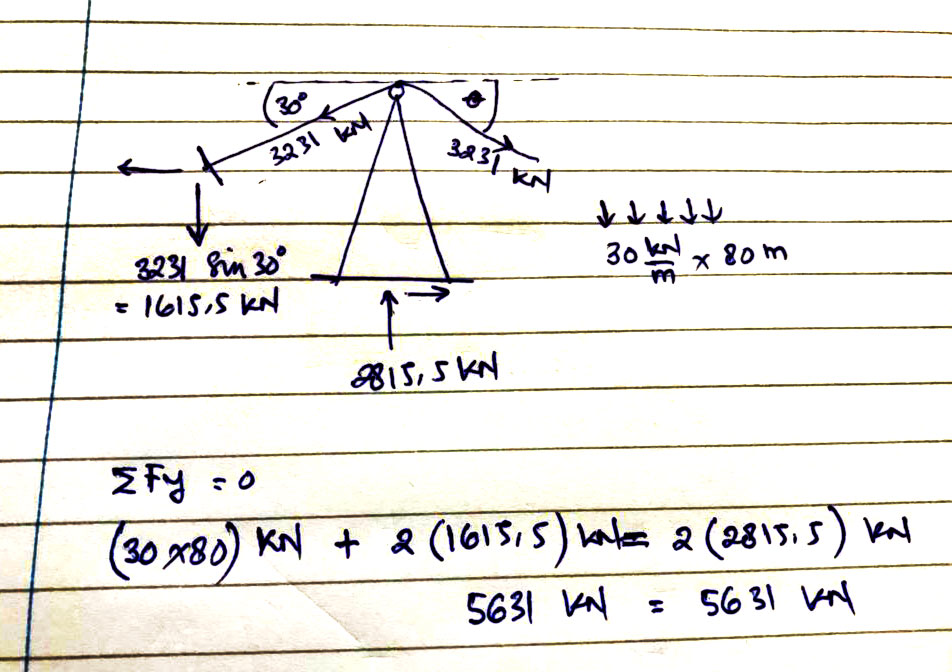 30° θ
3231 kN 3231 kN
3231 sin 30°
= 1615,5 kN
30 kN/m × 80 m
2815,5 kN
ΣFy = 0
(30 ×80) kN + 2 (1615,5) kN = 2 (2815,5) kN
5631 kN = 5631 kN